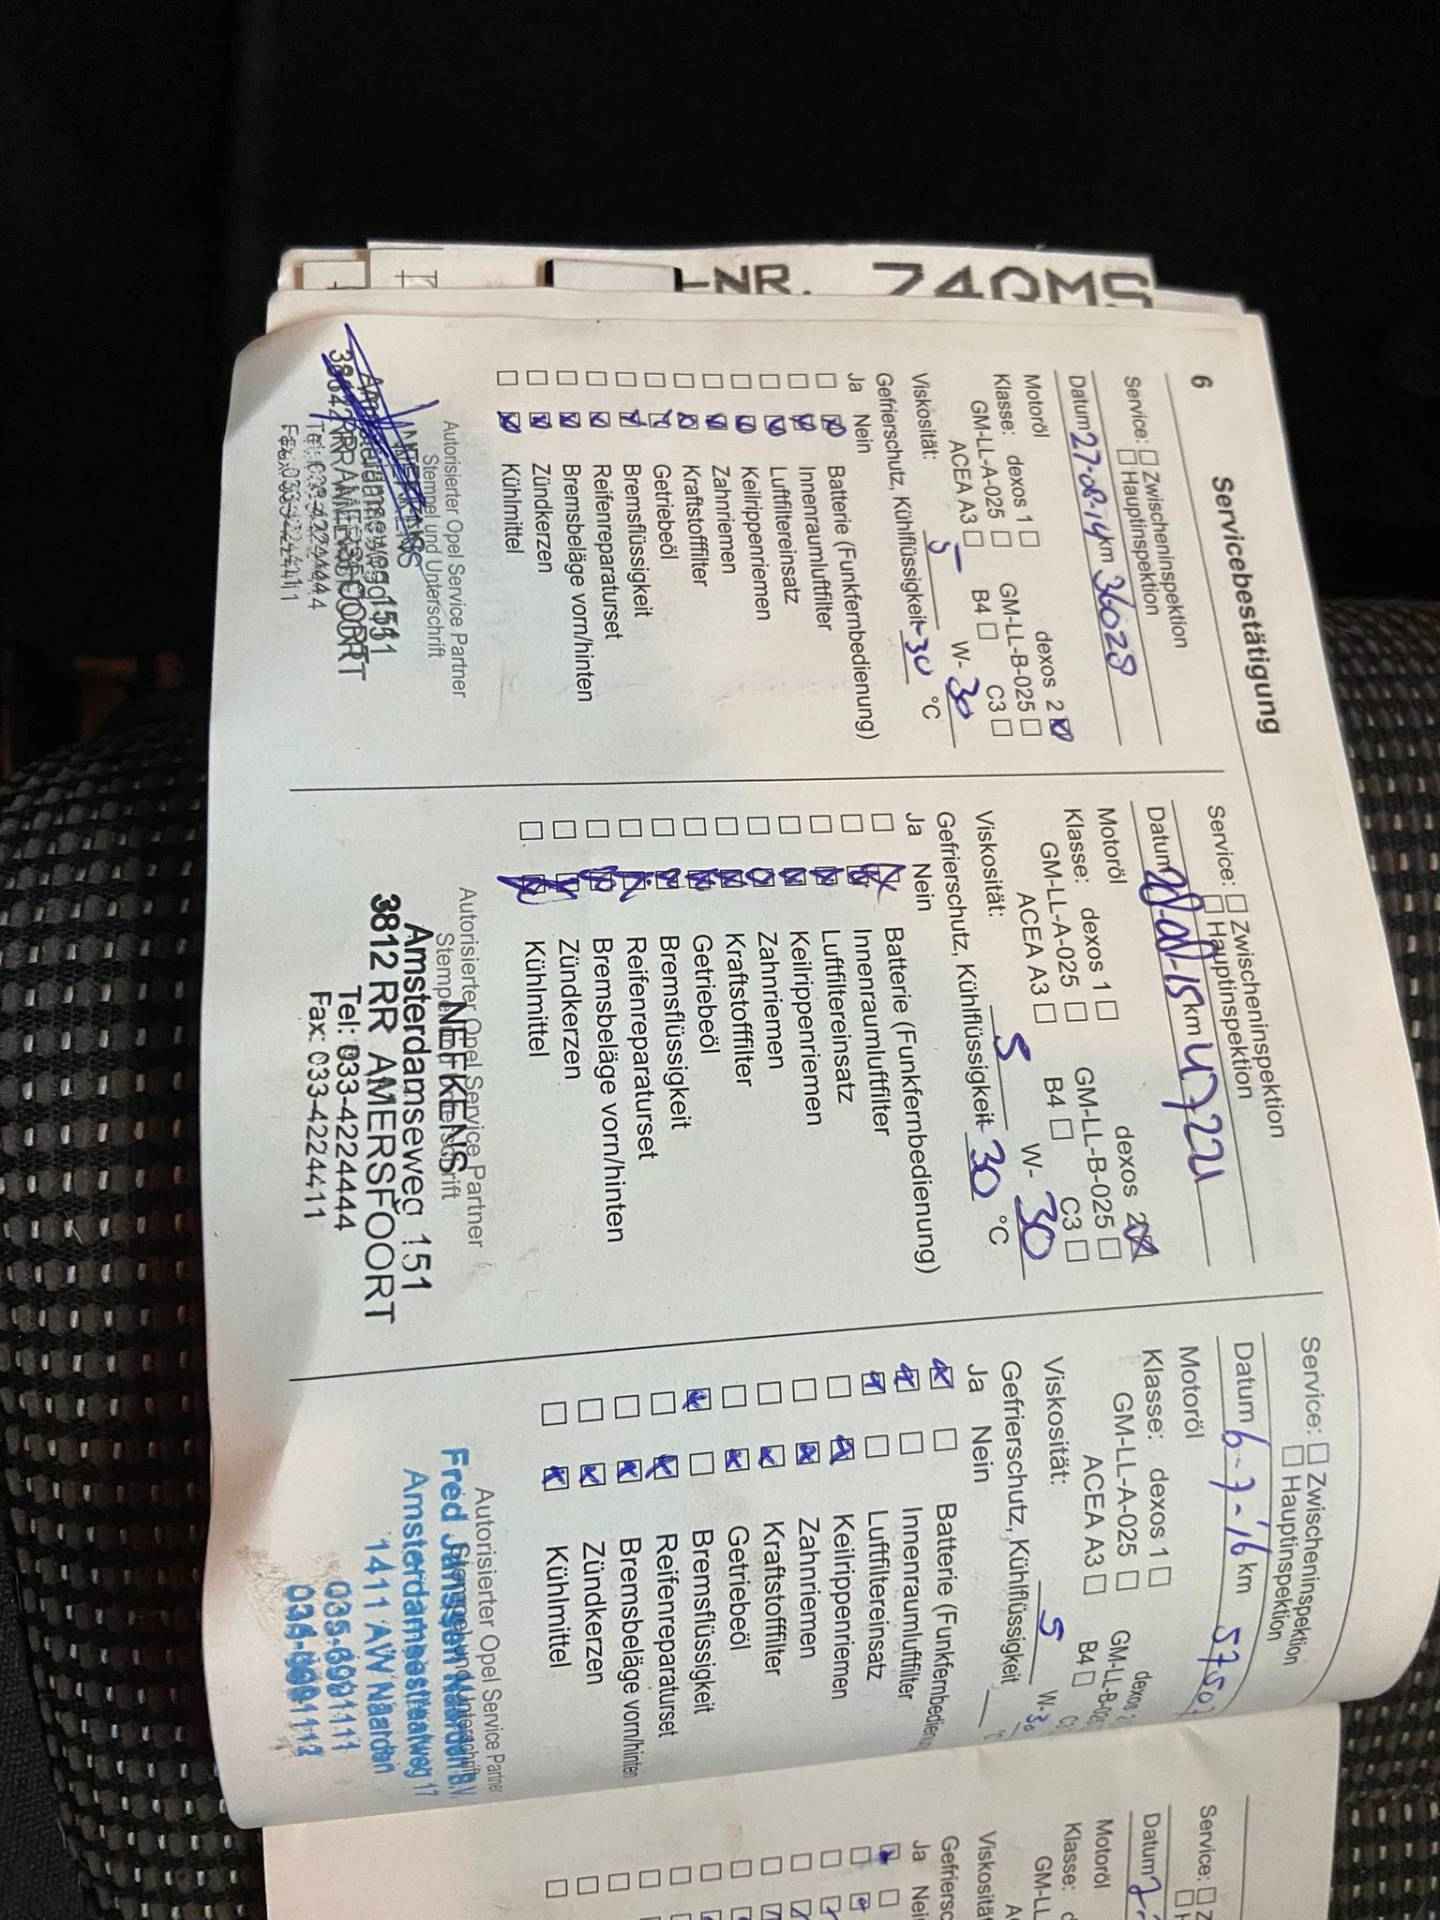 -NR. 740MS
6
Servicebestätigung
Service: Zwischeninspektion
Hauptinspektion
Datum 27-08-14 km 36028
Motoröl
Klasse: dexos 1 dexos 2
GM-LL-A-025 GM-LL-B-025
ACEA A3 B4 C3
Viskosität: 5 W- 30
Gefrierschutz, Kühlflüssigkeit -30 °C
Ja Nein
Batterie (Funkfernbedienung)
Innenraumluftfilter
Luftfiltereinsatz
Keilrippenriemen
Zahnriemen
Kraftstofffilter
Getriebeöl
Bremsflüssigkeit
Reifenreparaturset
Bremsbeläge vorn/hinten
Zündkerzen
Kühlmittel
Autorisierter Opel Service Partner
Stempel und Unterschrift
Amsterdamseweg 151
Service: Zwischeninspektion
Hauptinspektion
Datum 28-08-15 km 47221
Motoröl
Klasse: dexos 1 dexos 2
GM-LL-A-025 GM-LL-B-025
ACEA A3 B4 C3
Viskosität: 5 W- 30
Gefrierschutz, Kühlflüssigkeit -30 °C
Ja Nein
Batterie (Funkfernbedienung)
Innenraumluftfilter
Luftfiltereinsatz
Keilrippenriemen
Zahnriemen
Kraftstofffilter
Getriebeöl
Bremsflüssigkeit
Reifenreparaturset
Bremsbeläge vorn/hinten
Zündkerzen
Kühlmittel
Autorisierter Opel Service Partner
NEFKENS
Amsterdamseweg 151
3812 RR AMERSFOORT
Tel: 033-4224444
Fax: 033-4224411
Service: Zwischeninspektion
Hauptinspektion
Datum 6-7-'16 km 57507
Motoröl
Klasse: dexos 1 dexos
GM-LL-A-025
ACEA A3 B4
Viskosität: 5 W-30
Gefrierschutz, Kühlflüssigkeit
Ja Nein
Batterie
Innenraumluftfilter
Luftfiltereinsatz
Keilrippenriemen
Zahnriemen
Kraftstofffilter
Getriebeöl
Bremsflüssigkeit
Reifenreparaturset
Bremsbeläge vorn/hinten
Zündkerzen
Kühlmittel
Autorisierter Opel Service Partner
Fred Janssen Naarden B.V.
Amsterdamsestraatweg 17
1411 AW Naarden
Service:
Datum
Motoröl
Klasse:
GM-LL
Ja